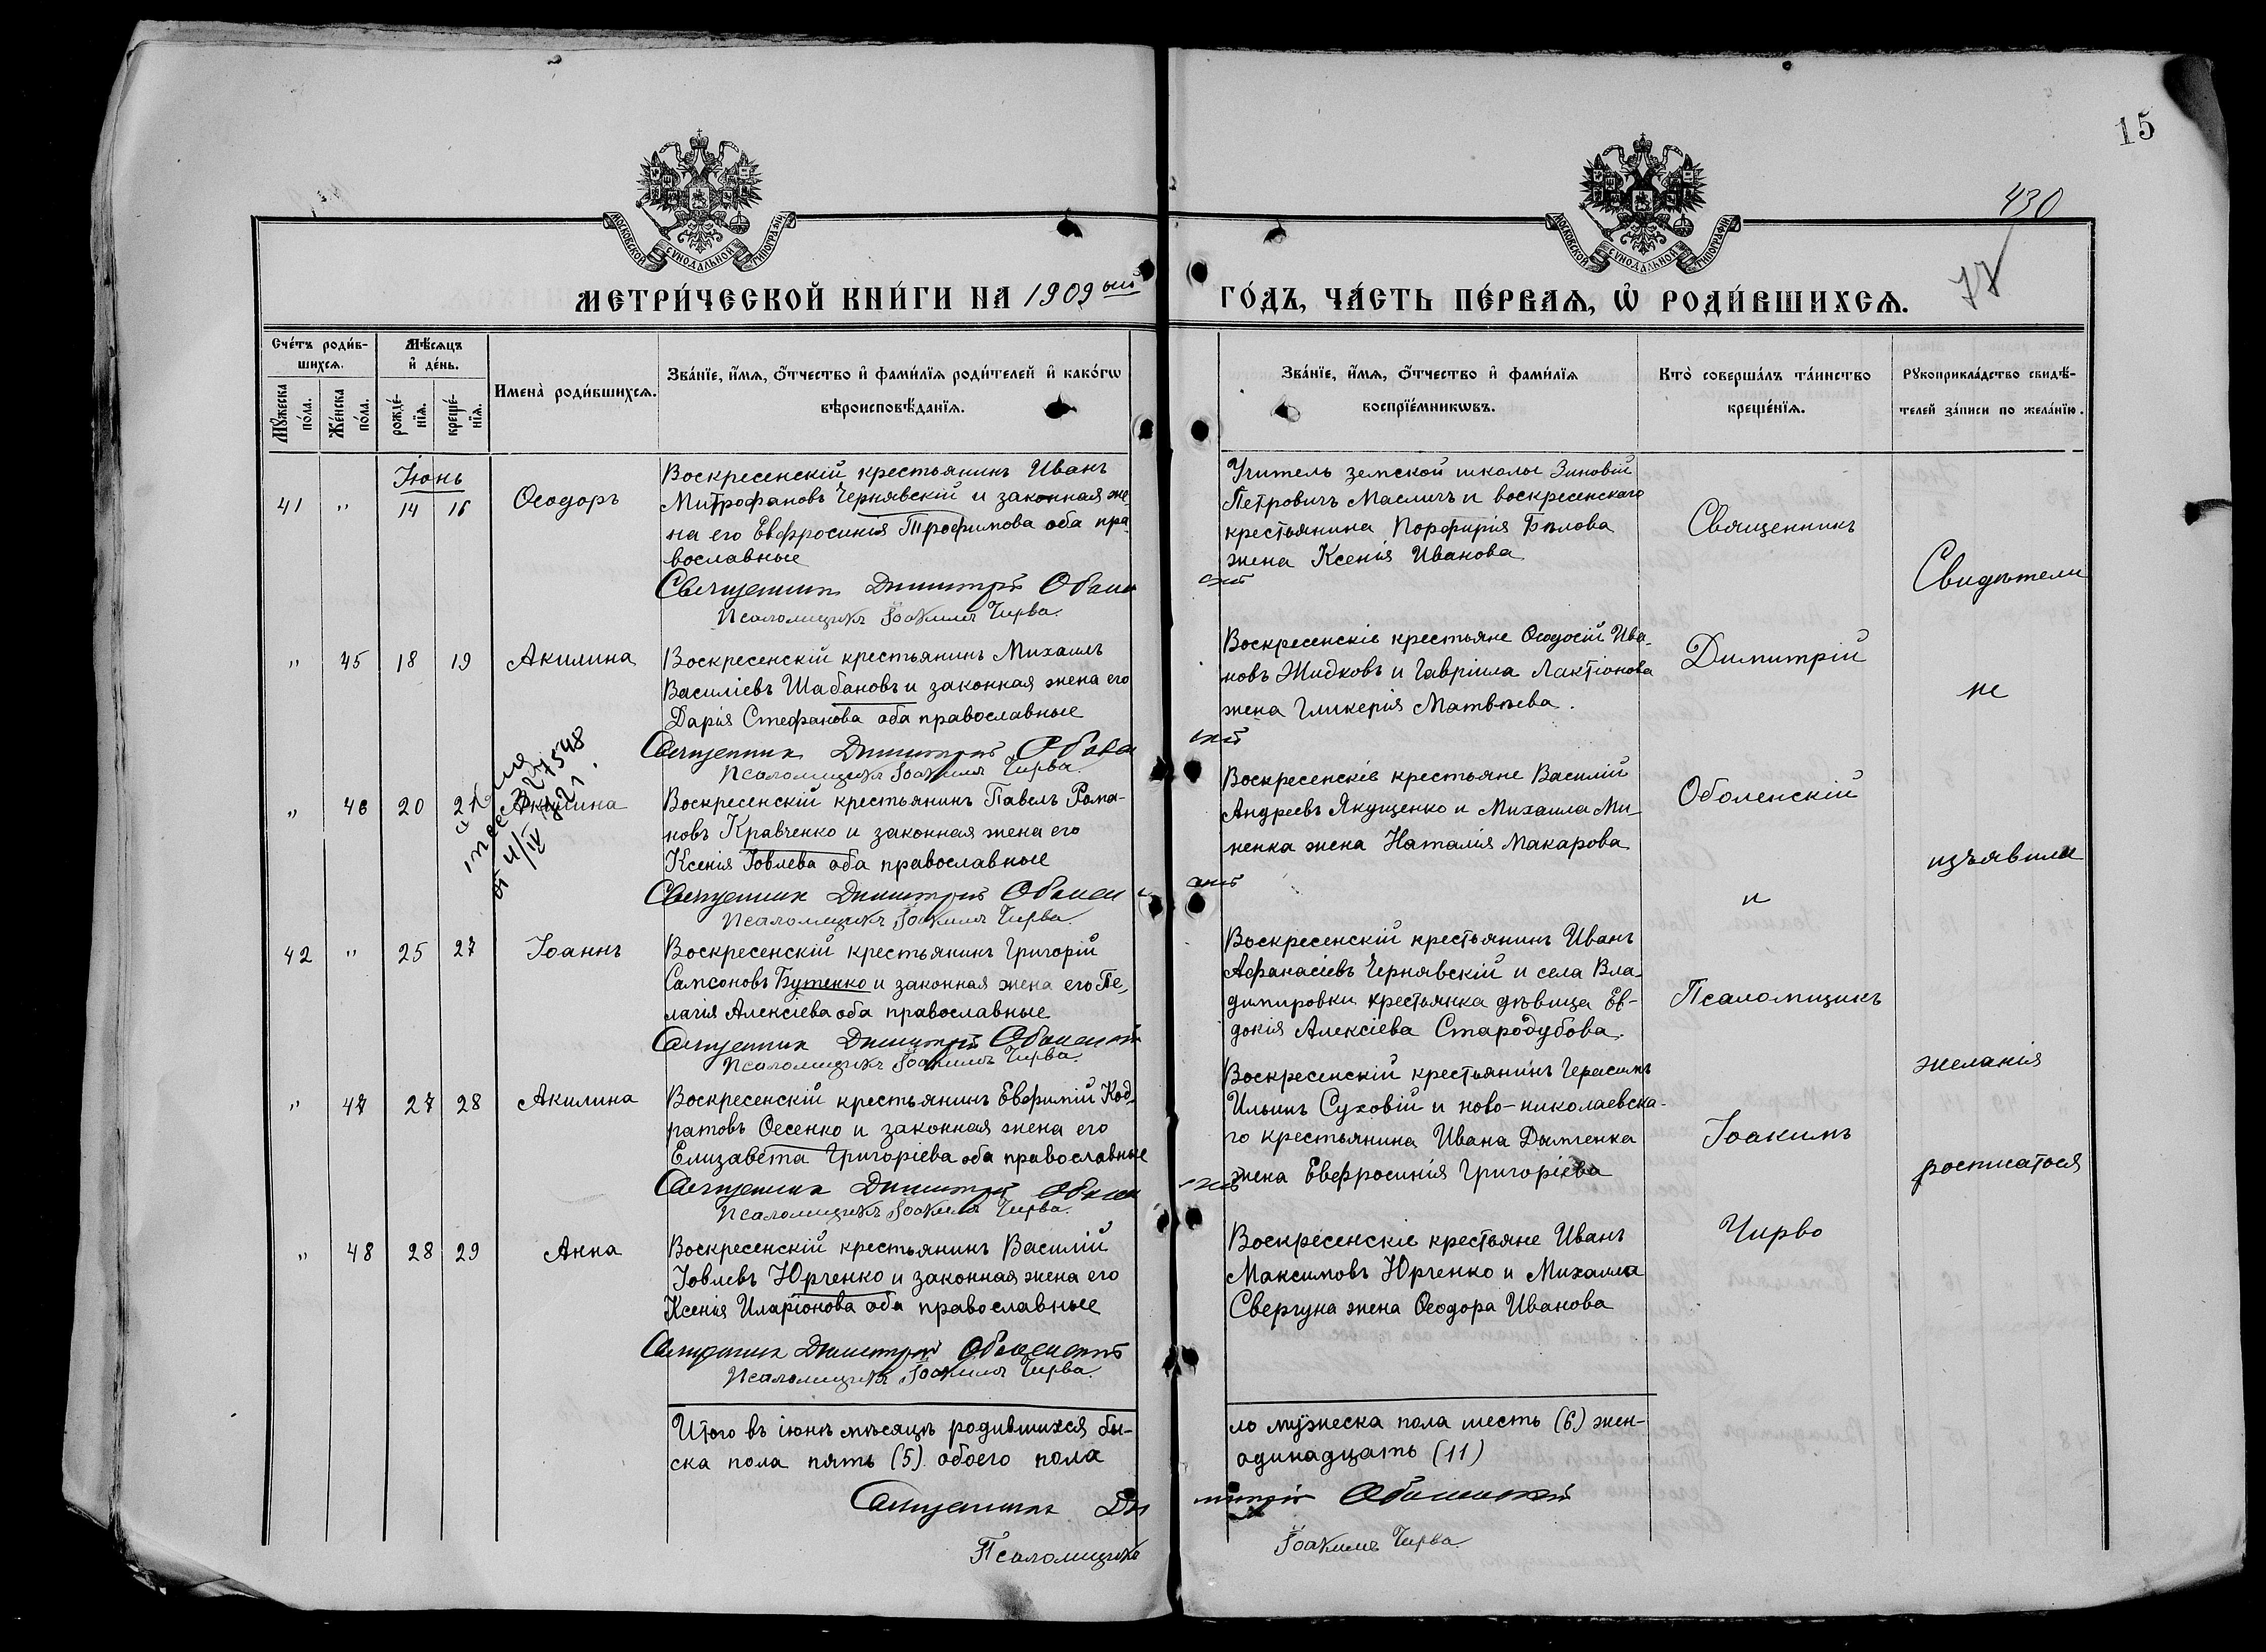 15
430
77
МОСКОВСКОЙ СѴНОДАЛЬНОЙ ТИПОГРАФІИ
МОСКОВСКОЙ СѴНОДАЛЬНОЙ ТИПОГРАФІИ
МЕТРИ́ЧЕСКОЙ КНИ́ГИ НА 1909ый ГО́ДЪ, ЧА́СТЬ ПЕ́РВАѦ, Ѡ҆ РОДИ́ВШИХСѦ.
Сче́тъ роди́в-
шихсѧ.
Мꙋ́жеска по́ла.
Же́нска по́ла.
Мѣ́сѧцъ
и҆ де́нь.
рожде́-
нїѧ.
креще́-
нїѧ.
Имена̀ роди́вшихсѧ.
Зва́нїе, и҆́мѧ, ѻ҆́тчество и҆ фами́лїѧ роди́телей и҆ како́гѡ
вѣроисповѣ́данїѧ.
Зва́нїе, и҆́мѧ, ѻ҆́тчество и҆ фами́лїѧ
воспрїе́мникѡвъ.
Кто̀ соверша́лъ та́инство
креще́нїѧ.
Рꙋкоприкла́дство свидѣ́-
телей за́писи по жела́нїю.
Іюнь
41 " 14 16 Ѳеодоръ
Воскресенскій крестьянинъ Иванъ
Митрофановъ Чернявскій и законная же-
на его Евфросинія Трофимова оба пра-
вославные
Священникъ Димитрій Оболенскій
Псаломщикъ Іоакимъ Чирва.
Учитель земской школы Зиновій
Петровичъ Масличъ и воскресенскаго
крестьянина Порфирія Бѣлова
жена Ксенія Иванова
" 45 18 19 Акилина
Воскресенскій крестьянинъ Михаилъ
Василіевъ Шабановъ и законная жена его
Дарія Стефанова оба православные
Священникъ Димитрій Оболенскій
Псаломщикъ Іоакимъ Чирва.
Воскресенскіе крестьяне Ѳеодосій Ива-
новъ Жидковъ и Гавріила Лактіонова
жена Гликерія Матвѣева.
" 46 20 21 Акилина
327548
от 11/IV
Воскресенскій крестьянинъ Павелъ Рома-
новъ Кравченко и законная жена его
Ксенія Іовлева оба православные
Священникъ Димитрій Оболенскій
Псаломщикъ Іоакимъ Чирва.
Воскресенскіе крестьяне Василій
Андреевъ Якущенко и Михаила Ми-
ненка жена Наталія Макарова
42 " 25 27 Іоаннъ
Воскресенскій крестьянинъ Григорій
Самсоновъ Бутенко и законная жена его Пе-
лагія Алексіева оба православные
Священникъ Димитрій Оболенскій
Псаломщикъ Іоакимъ Чирва.
Воскресенскій крестьянинъ Иванъ
Афанасіевъ Чернявскій и села Вла-
димировки крестьянка дѣвица Ев-
докія Алексіева Стародубова.
" 47 27 28 Акилина
Воскресенскій крестьянинъ Евфимій Код-
ратовъ Ѳесенко и законная жена его
Елизавета Григоріева оба православные
Священникъ Димитрій Оболенскій
Псаломщикъ Іоакимъ Чирва.
Воскресенскій крестьянинъ Герасимъ
Ильинъ Суховій и ново-николаевска-
го крестьянина Ивана Дымченка
жена Евфросинія Григоріева
" 48 28 29 Анна
Воскресенскій крестьянинъ Василій
Іовлевъ Юрченко и законная жена его
Ксенія Иларіонова оба православные
Священникъ Димитрій Оболенскій
Псаломщикъ Іоакимъ Чирва.
Воскресенскіе крестьяне Иванъ
Максимовъ Юрченко и Михаила
Свергуна жена Ѳеодора Иванова
Священникъ
Димитрій
Оболенскій
и
Псаломщикъ
Іоакимъ
Чирво
Свидѣтели
не
изъявили
желанія
росписатося
Итого въ іюнѣ мѣсяцѣ родившихся бы-
ло мужеска пола шесть (6) жен-
ска пола пять (5) обоего пола
одинадцать (11)
Священникъ Димитрій Оболенскій
Псаломщикъ Іоакимъ Чирва.